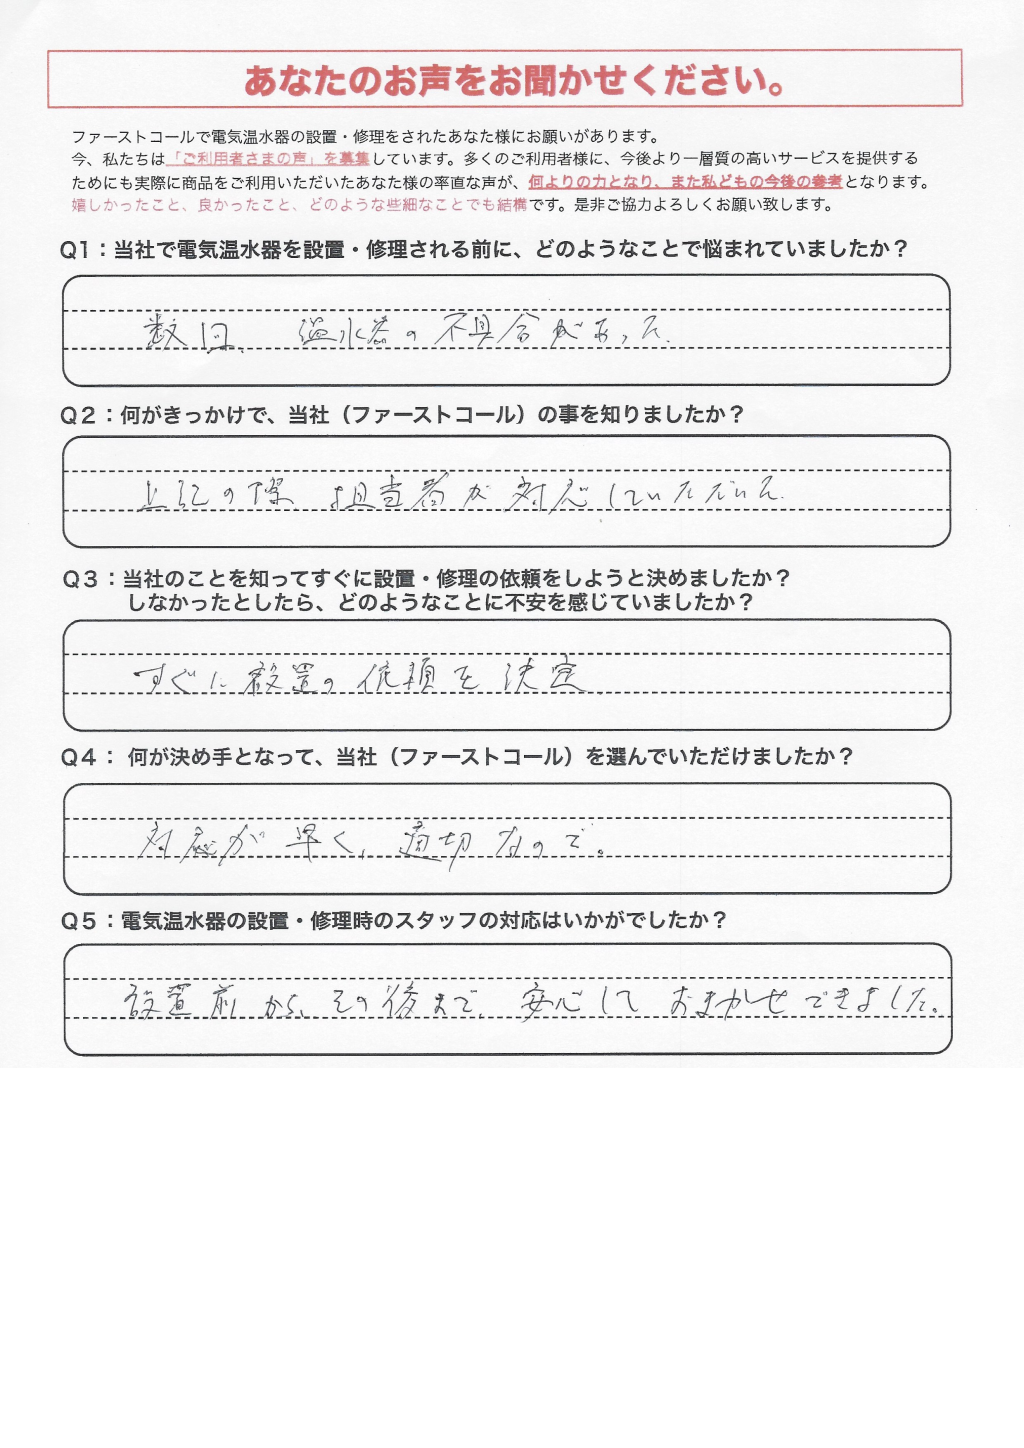 あなたのお声をお聞かせください。
ファーストコールで電気温水器の設置・修理をされたあなた様にお願いがあります。
今、私たちは「ご利用者さまの声」を募集しています。多くのご利用者様に、今後より一層質の高いサービスを提供する
ためにも実際に商品をご利用いただいたあなた様の率直な声が、何よりの力となり、また私どもの今後の参考となります。
嬉しかったこと、良かったこと、どのような些細なことでも結構です。是非ご協力よろしくお願い致します。
Q1：当社で電気温水器を設置・修理される前に、どのようなことで悩まれていましたか？
数回、温水器の不具合があった。
Q２：何がきっかけで、当社（ファーストコール）の事を知りましたか？
上記の際 担当者が対応していただいた。
Q３：当社のことを知ってすぐに設置・修理の依頼をしようと決めましたか？
しなかったとしたら、どのようなことに不安を感じていましたか？
すぐに設置の依頼を決定
Q４： 何が決め手となって、当社（ファーストコール）を選んでいただけましたか？
対応が早く、適切なので。
Q５：電気温水器の設置・修理時のスタッフの対応はいかがでしたか？
設置前から、その後まで、安心しておまかせできました。